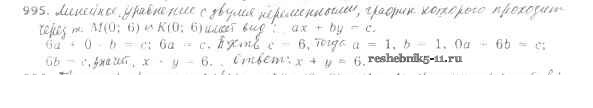 995. Линейное уравнение с двумя переменными, график которого проходит
через т. M(0; 6) и K(0; 6) имеет вид: ax + by = c.
6a + 0 · b = c; 6a = c. Пусть c = 6, тогда a = 1, b = 1, 0a - 6b = c;
6b = c, значит, x · y = 6. Ответ: x + y = 6.
reshebnik5-11.ru